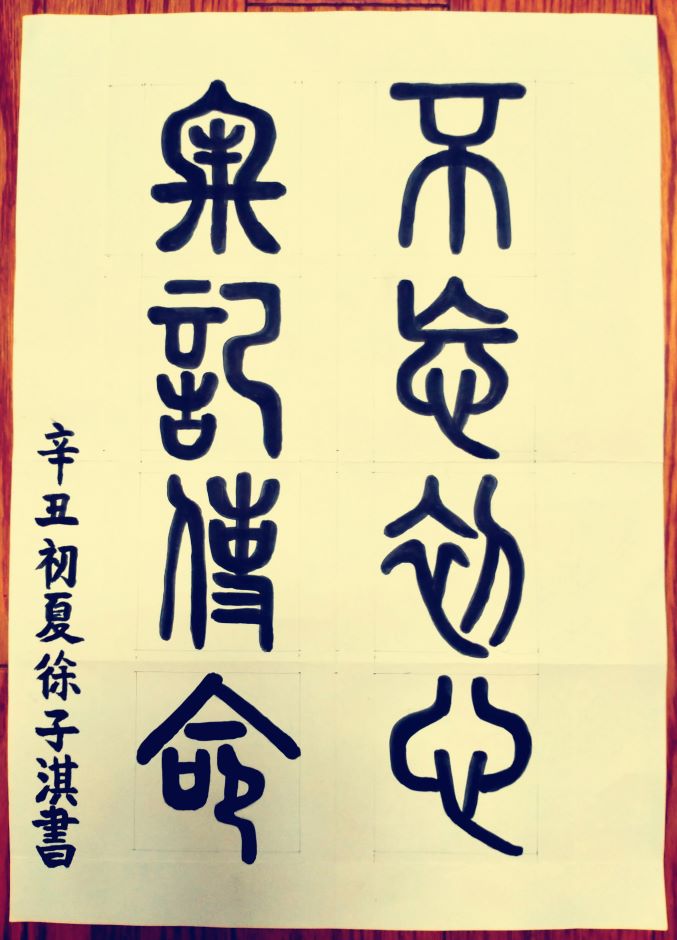 不忘初心
牢記使命
辛丑初夏徐子淇書